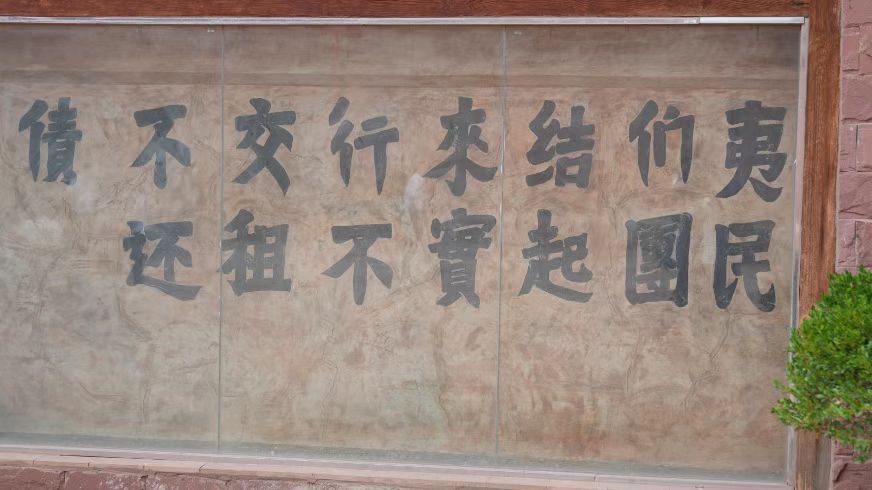 夷民
们團
结起
來實
行不
交租
不还
債